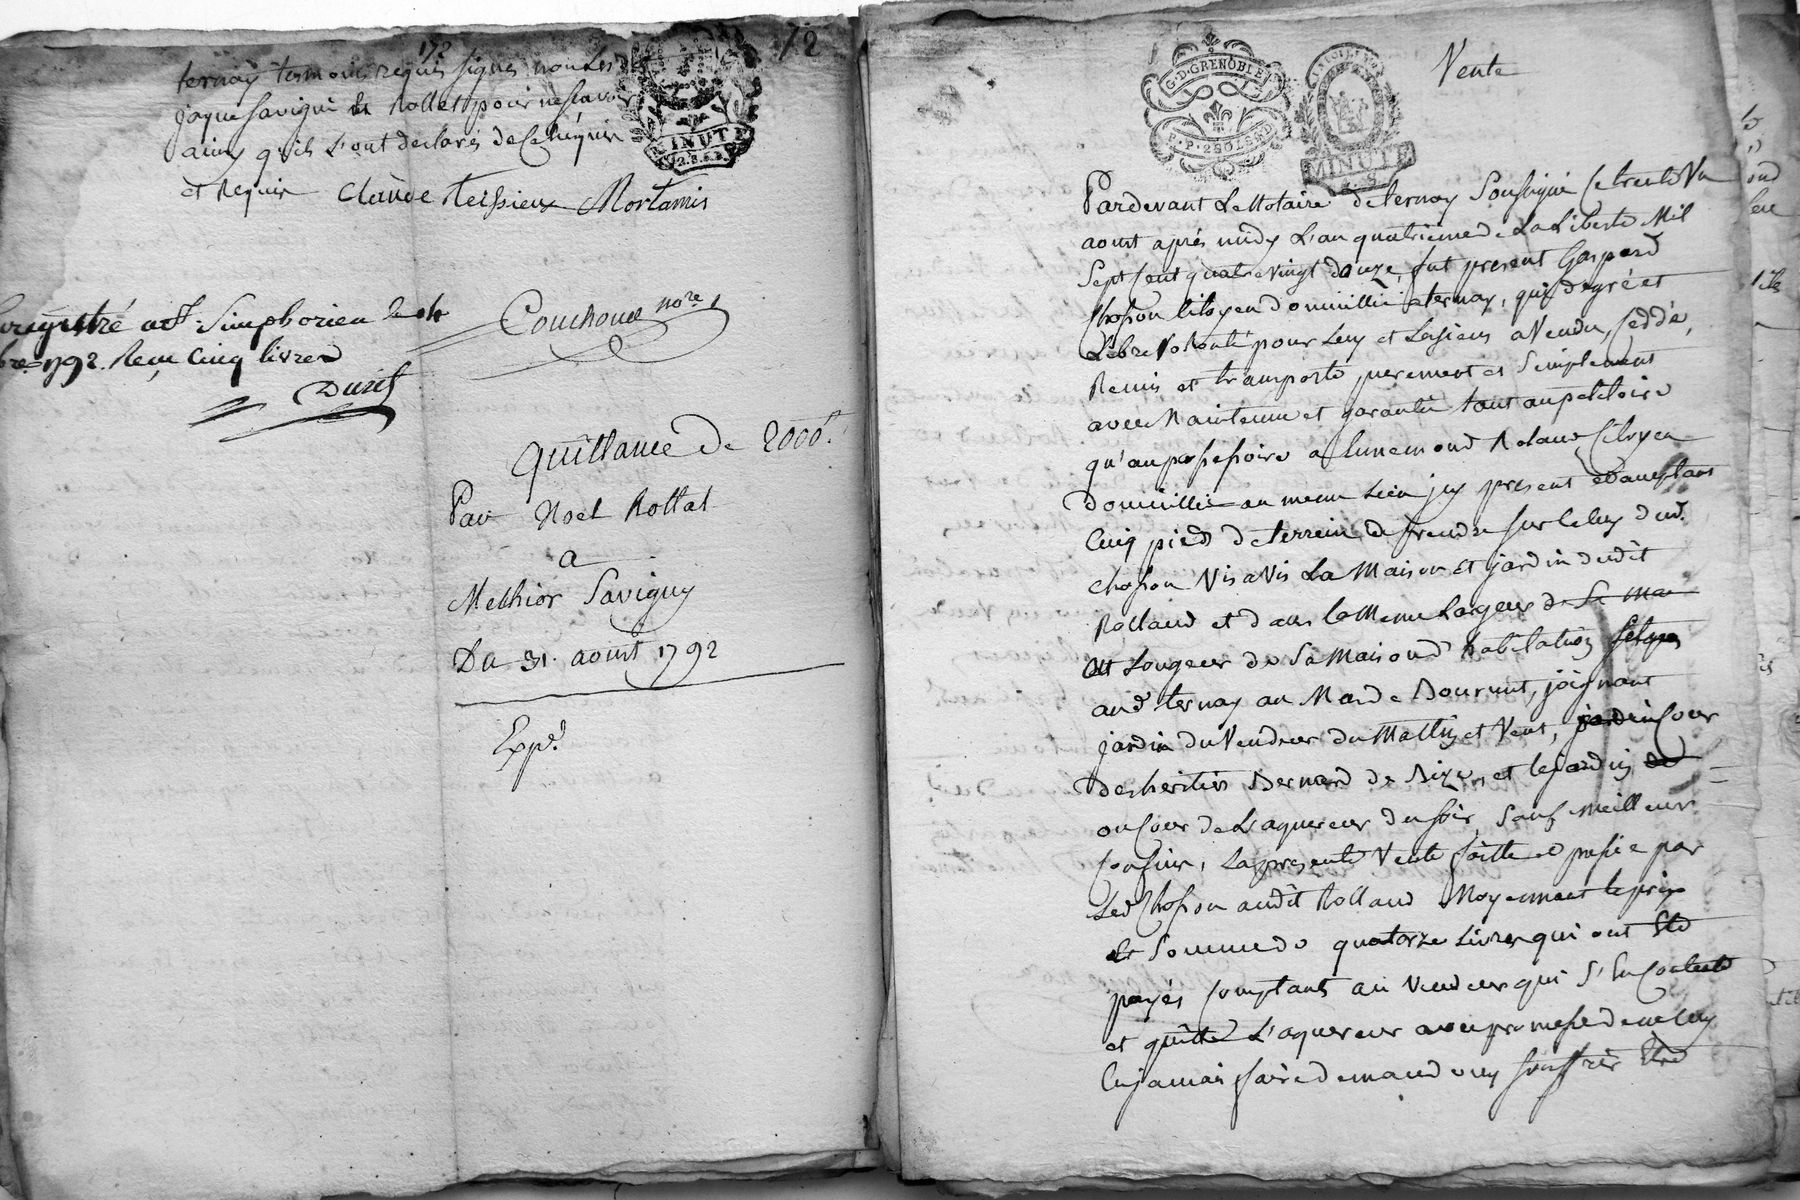 172
72
ternay temoins requis signes non Les
jaque Savigni et Rollet pour ne scavoir
ainsy qu'ils L'ont declarés de Ce Requis
et Requis Claude Teissieux Mortamis
MINUTE
Couchoud nore
Enregistré a St. Simphorien le 4
bre 1792. Reçu Cinq livres
Duret
Quittance de 2000#
Par Noel Rollat
a
Melchior Savigny
Du 31. aoust 1792
Exp.d
G.D. GRENOBLE
F.P. 2 SOLS 8 D
MINUTE
Vente
Pardevant Le Notaire de ternay Soussigné Ce trente Un
aoust après midy L'an quatrieme de La Liberté Mil
Sept Cent quatre Vingt douze, fut present Gaspard
Chosson Citoyen domicillié a ternay, qui de gré et
Libre Volonté pour Luy et Les siens a Vendu, Ceddé,
Remis et transporté purement et Simplement
avec Maintenue et garantie tant au petitoire
qu'au possessoire a Ennemond Roland Citoyen
domicillié au meme Lieu icy present et acceptant
Cinq pieds de terrein a prendre sur Celuy dud.
Chosson Vis a Vis La Maison et jardin dudit
Rolland et dans la Meme Largeur de Sa mai
et Longueur de Sa Maison d'habitation
aud. ternay au Mas de Bourrut, joignant
jardin du Vendeur du Mattin et Vent, jardin Cour
des heritiers Bernard de Bize, et le jardin
ou Cour de L'aquereur du soir, Sauf meilleurs
Confins, La presente Vente faitte et passée par
Led. Chosson audit Rolland Moyennant le prix
et Somme de quatorze Livres qui ont été
payés Comptants au Vendeur qui S'en Contente
et quitte L'aquereur avec promesse de ne luy
En jamais faire demande ny souffrir être